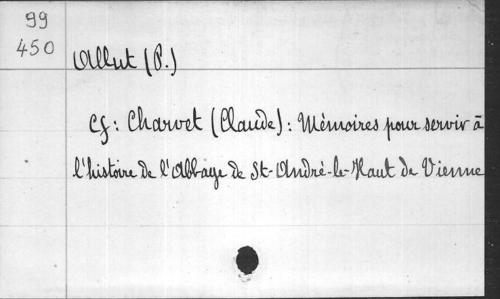 99
450
Allut (P.)
Cf : Charvet (Claude) : Mémoires pour servir à
l'histoire de l'Abbaye de St-André-le-Haut de Vienne